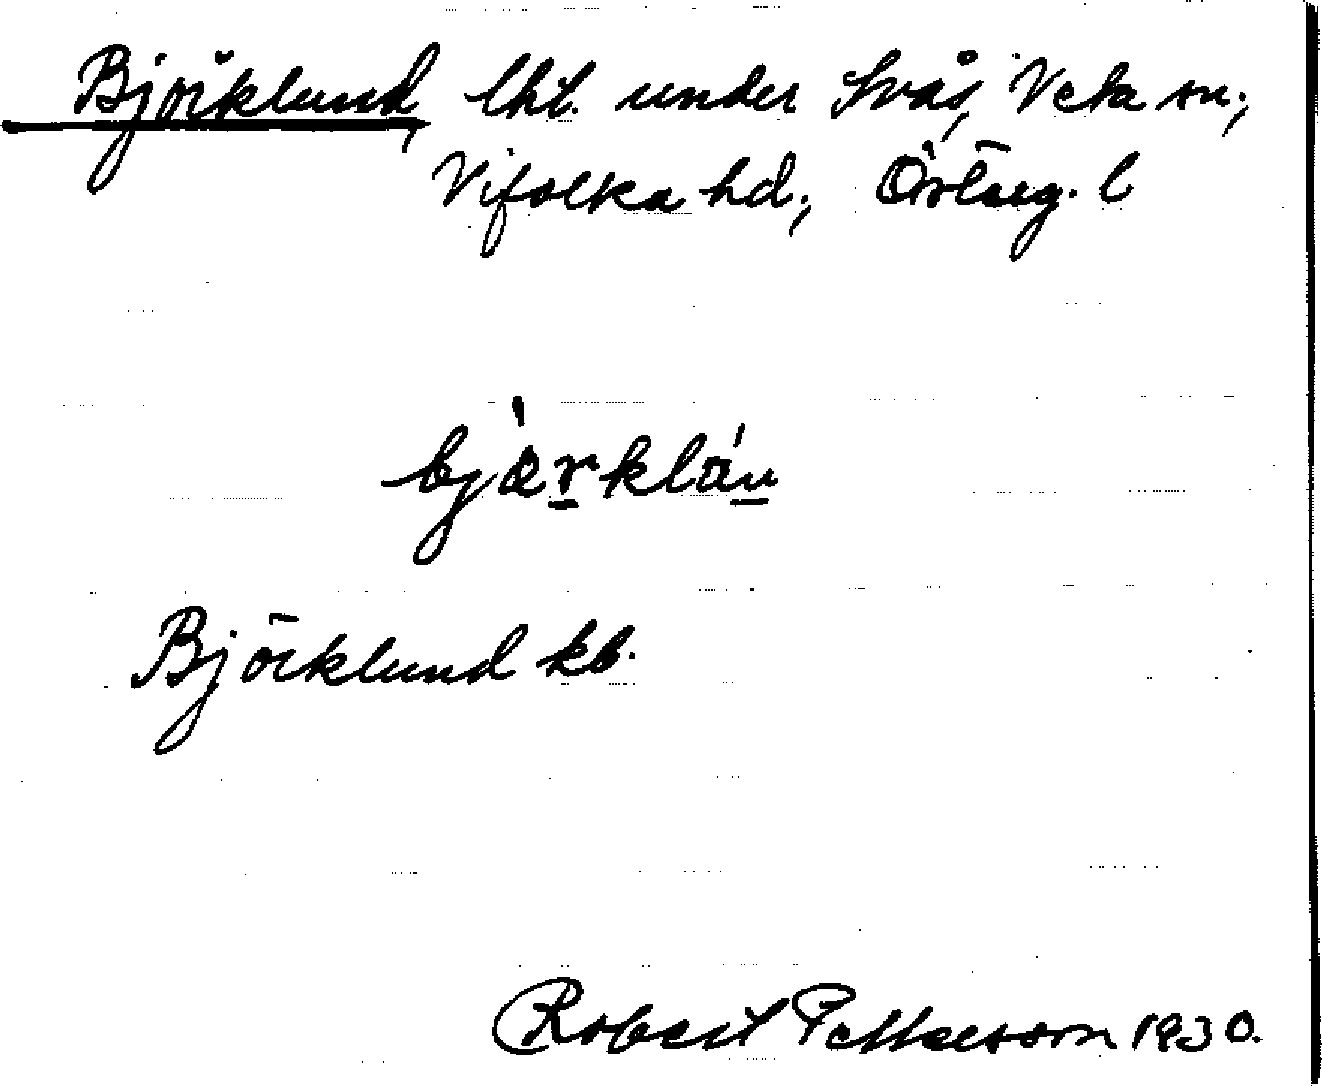 Björklund, lht. under Svås, Veta sn.,
Vifolka hd., Österg. l
bjàrklán
Björklund kb.
Robert Petterson 1930.